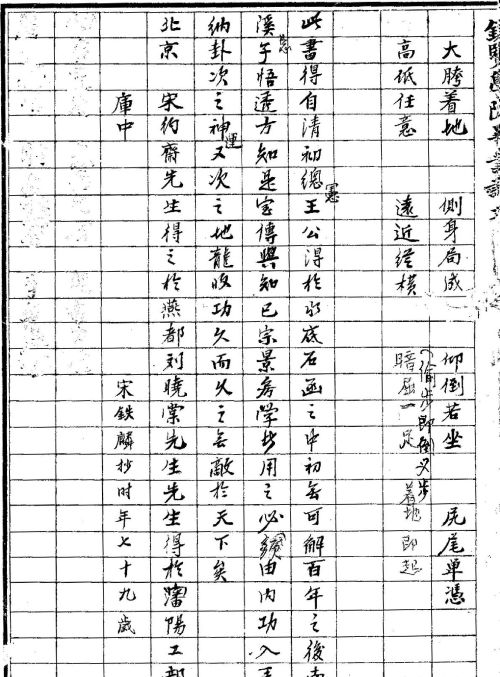 大胯着地 側身局成 仰倒若坐 尻尾單憑
高低任意 遠近縱橫 暗屈一足 着地即起
(偷步即倒叉步)
此書得自清初總憲王公得於水底石函之中初無可解百年之後南
溪子悟透方知是宝傳與知已宗景房學 用之必須由內功入手
納卦次之神運又次之地龍收功久而久之無敵於天下矣
北京 宋約齋先生得之於燕都刘曉棠先生先生得於瀋陽工部
庫中 宋鉄麟抄时年七十九歲